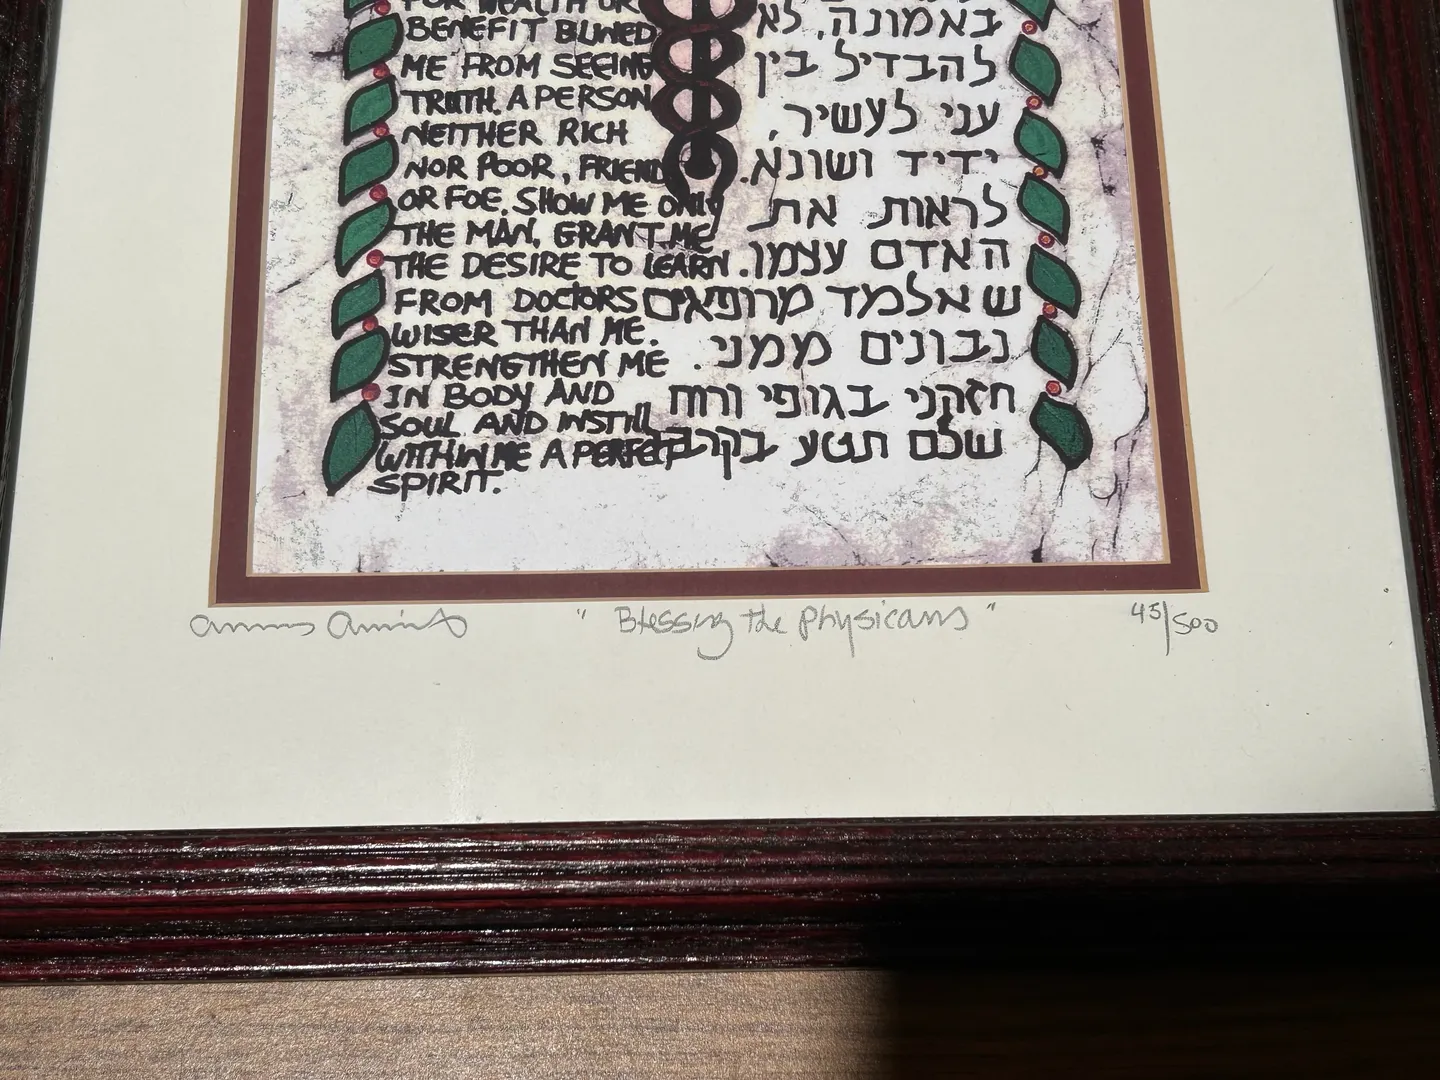 FOR WEALTH OR
BENEFIT BLINED
ME FROM SEEING
TRUTH. A PERSON
NEITHER RICH
NOR POOR, FRIEND
OR FOE. SHOW ME ONLY
THE MAN. GRANT ME
THE DESIRE TO LEARN
FROM DOCTORS
WISER THAN ME.
STRENGTHEN ME
IN BODY AND
SOUL AND INSTILL
WITHIN ME A PERFECT
SPIRIT.
באמונה, לא
להבדיל בין
עני לעשיר,
ידיד ושונא.
לראות את
האדם עצמו.
שאלמד מרופאים
נבונים ממני.
חזקני בגופי ורוח
שלם תטע בקרבי
"Blessing the Physicans"
45/500